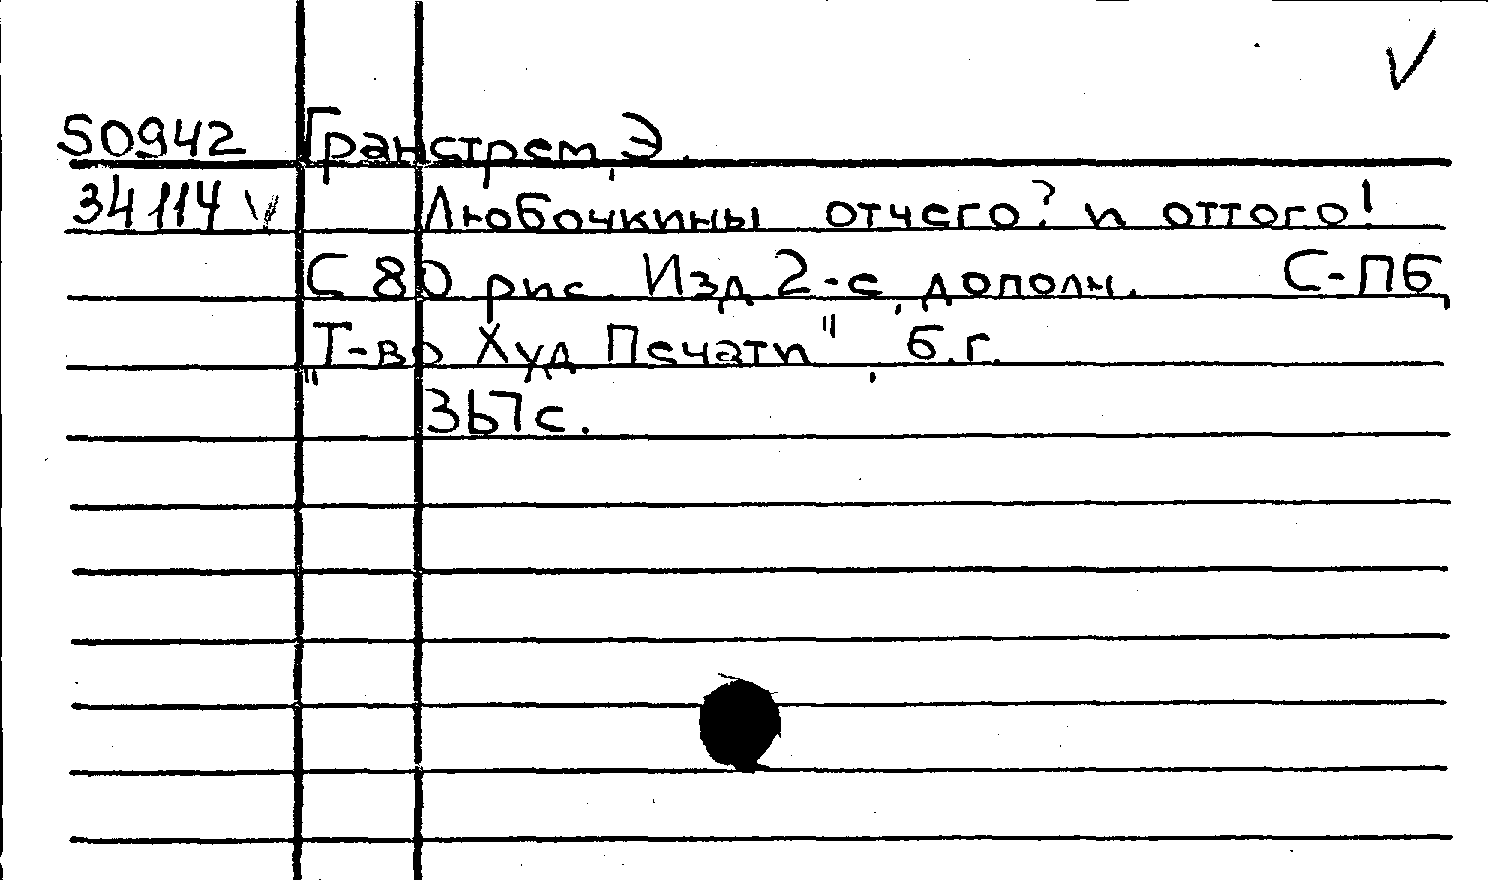 50942 Гранстрем, Э.
34114 V Любочкины отчего? и оттого!
С 80 рис. Изд 2-е, дополн. С-ПБ,
"Т-во Худ Печати", б.г.
367с.